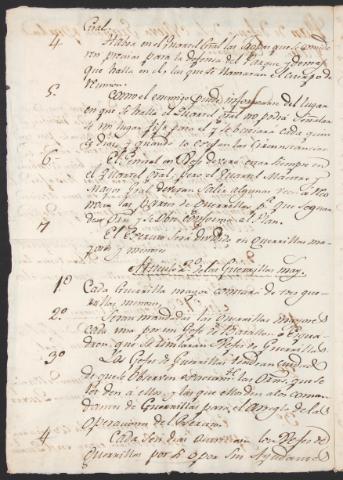 Gral.
4. Habra en el Quartel Gral las Tropas que se consideren
precisas para la defensa del Parque y demas
que halla en el, las que se llamaran el cuerpo de
reunion.
5. Como el enemigo puede informarse del lugar
en que se halla el Quartel Gral no podrá señalarse
un lugar fijo para el y se variará cada quince
dias, y quando lo exijan las circunstancias
6. El General en Xefe deverá estar siempre en
el Quartel Gral, pero el Quartel Maestre y
Mayor Gral deveran salir algunas veces a reconocer
los Cuerpos de Guerrillas pa. que se guarde
orden y se obre conforme al Plan.
7 El Exercito será dividido en Guerrillas mayores
y menores
Articulo 2º de las Guerrillas may.
1º Cada Guerrilla mayor constará de tres guerrillas
menores,
2º Seran mandadas las Guerrillas mayores
cada una por un Gefe de Batallon o Esquadron,
que se llamaran Xefes de Guerrillas
3º Los Gefes de Guerrillas tendran cuidado
de que se observen exactamte. las Orns. que se
les den a ellos, y las que ellos den a los comandantes
de Guerrillas para el arreglo de las
Operaciones del Exercito.
4 Cada seis dias avisaran los Xefes de
Guerrillas por si o por sus Ayudantes